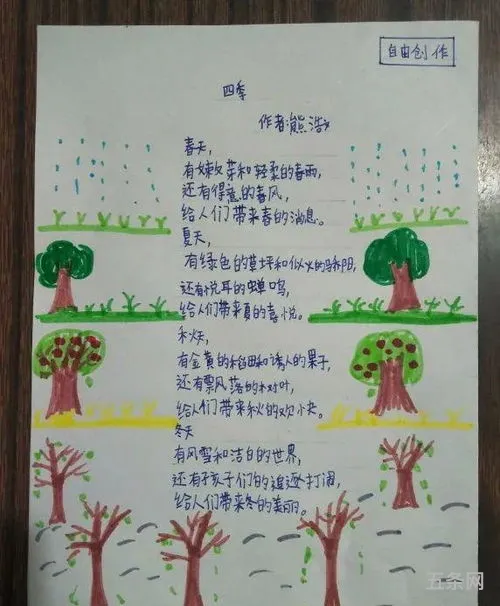 自由创作
四季
作者:熊浩
春天,
有嫩芽和轻柔的春雨,
还有得意的春风,
给人们带来春的消息。
夏天,
有绿色的草坪和似火的骄阳,
还有悦耳的蝉鸣,
给人们带来夏的喜悦。
秋天,
有金黄的稻田和诱人的果子,
还有飘落的树叶,
给人们带来秋的欢快。
冬天
有风雪和洁白的世界,
还有孩子们的追逐打闹,
给人们带来冬的美丽。
五条网